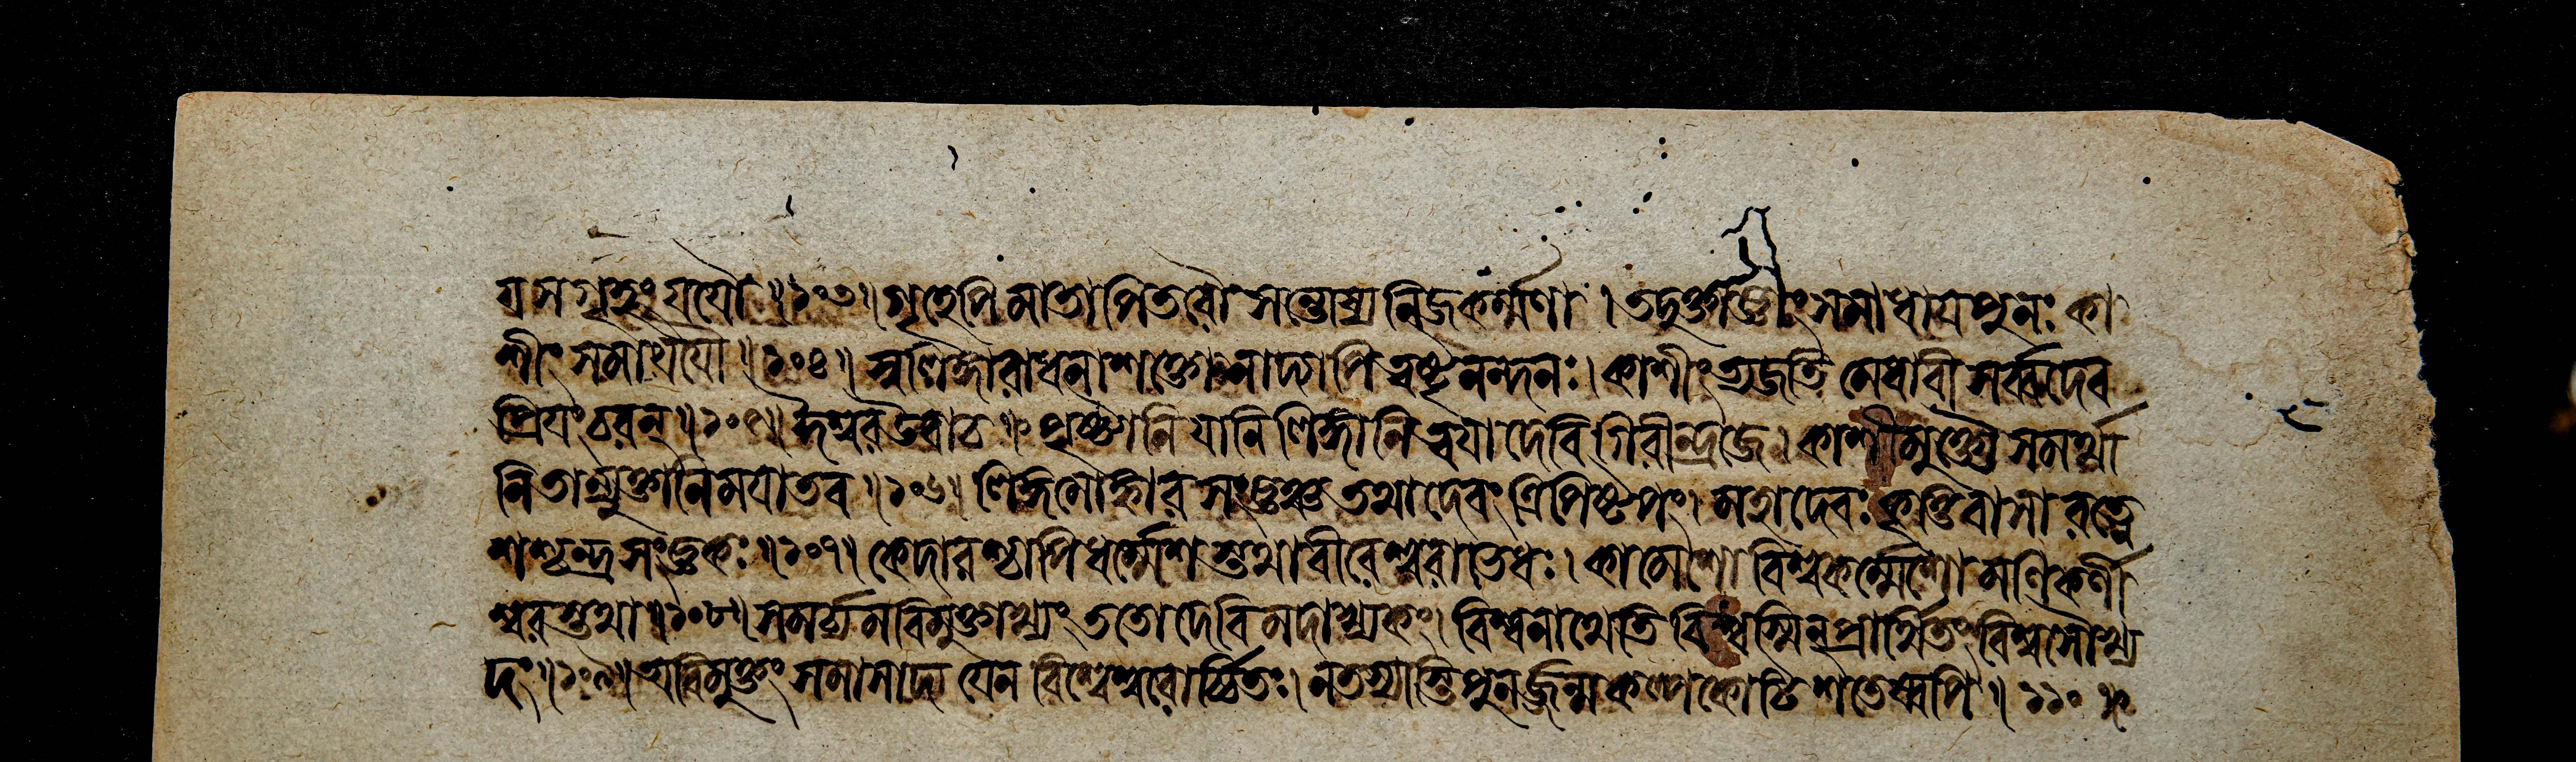 য সগৃহং যযৌ॥১০৩॥গৃহেপি মাতাপিতরৌ সন্তোষ্য নিজকর্ম্মণা । তদুক্তাজ্ঞাং সমাধায পুনঃ কা
শীং সমাযযৌ॥১০৪॥ স্বলিঙ্গারাধনাশক্তো নাদ্যাপি ত্বষ্টৃনন্দনঃ। কাশীং ত্যজতি মেধাবী সর্ব্বদেব
প্রিযং চরন্॥১০৫॥ ঈশ্বর উবাচ॥ পৃষ্টানি যানি লিঙ্গানি ত্বযা দেবি গিরীন্দ্রজে। কাশীমুক্ত্যৈ সমর্থা
নি তান্যুক্তানি মযা তব॥১০৬॥ লিঙ্গমোঙ্কারসংজ্ঞঞ্চ তথা দেবং ত্রিপিষ্টপং। মহাদেবঃ কৃত্তিবাসা রত্নে
শশ্চন্দ্রসংজ্ঞকঃ॥১০৭॥ কেদারশ্চাপি ধর্ম্মেশস্তথা বীরেশ্বরাভিধঃ। কামেশো বিশ্বকর্ম্মেশো মণিকর্ণী
শ্বরস্তথা॥১০৮॥ সমর্চ্যমবিমুক্তাখ্যং ততো দেবি মদাখ্যকং। বিশ্বনাথেতি বিশ্বস্মিন্ প্রার্থিতং বিশ্বসৌখ্য
দং॥১০৯॥ অবিমুক্তং সমাসাদ্য যেন বিশ্বেশ্বরোর্চ্চিতঃ। ন তস্যাস্তি পুনর্জ্জন্ম কল্পকোটিশতেষ্বপি॥ ১১০